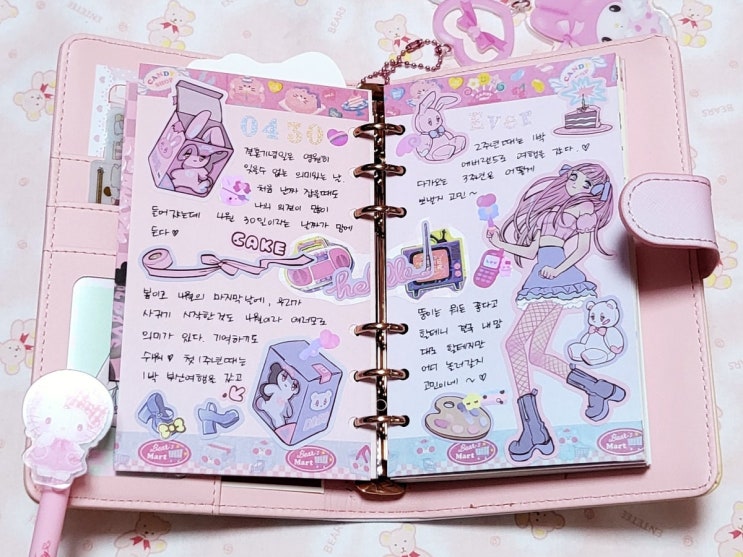 CANDY SHOP
0430
결혼기념일은 영원히
잊을수 없는 의미있는 날.
처음 날짜 잡을때도
나의 의견이 많이
들어갔는데 4월 30일이라는 날짜가 맘에
든다 ♡
CAKE
봄이고 4월의 마지막 날에, 우리가
사귀기 시작한것도 4월이라 여러모로
의미가 있다. 기억하기도
수월 ♥ 첫 1주년때는
1박 부산여행을 갔고
Best Mart
hello
CANDY SHOP
Ever
2주년때는 1박
에버랜드로 여행을 갔다. ♡
다가오는 3주년은 어떻게
보낼지 고민 ~
뚱이는 뭐든 좋다고
할테니 결국 내맘
대로 할테지만
어디 놀러갈지
고민이네 ~ ♡
Best Mart
Best Mart
BEARS